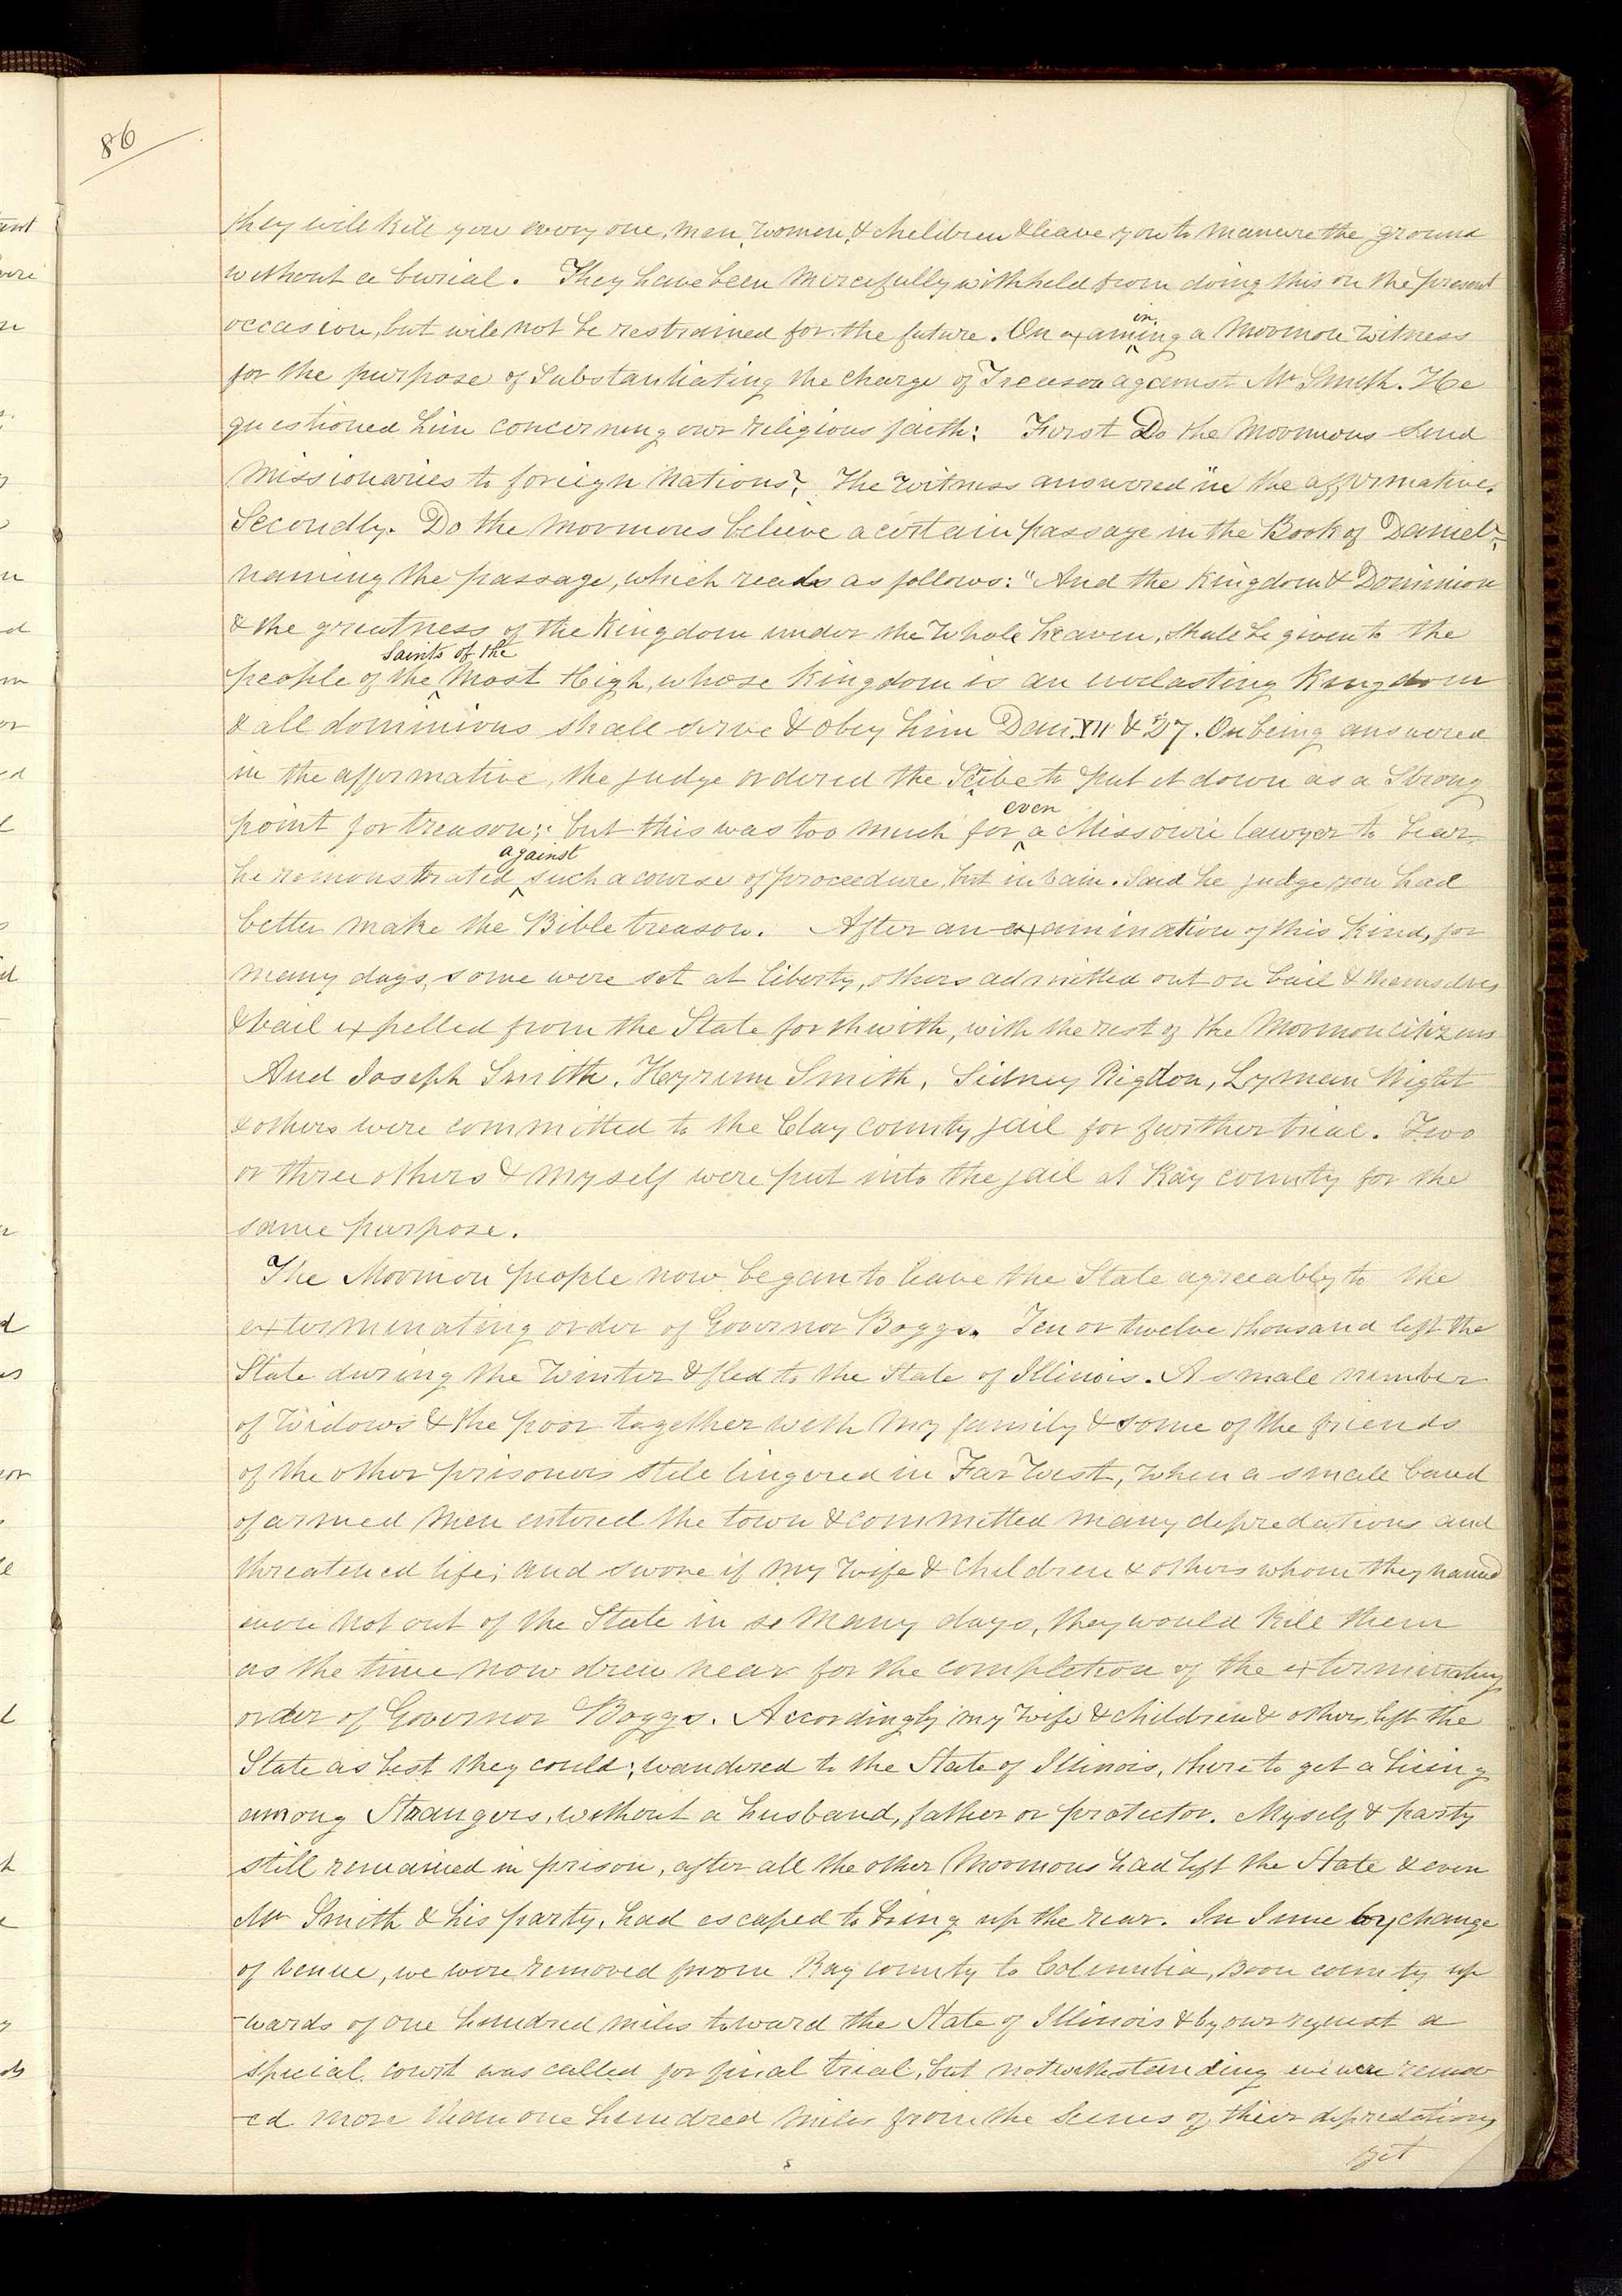 86
they will kill you every one, men, women, & children & leave you to manure the ground
without a burial. They have been mercifully withheld from doing this on the present
occasion, but will not be restrained for the future. On exam
in
ing a Mormon witness
for the purpose of substantiating the charge of Treason against Mr Smith. He
questioned him concerning our religious faith: First Do the Mormons send
missionaries to foreign nations? The witness answered in the affirmative.
Secondly. Do the Mormons believe a certain passage in the Book of Daniel?
naming the passage, which reads as follows: "And the Kingdom & Dominion
& the greatness of the Kingdom under the whole heaven, shall be given to the
saints of the
people of the Most High, whose Kingdom is an everlasting Kingdom
& all dominions shall serve & obey him Dan. VII & 27. On being answered
in the affirmative, the judge ordered the Scribe to put it down as a strong
even
point for treason; but this was too much for a Missouri lawyer to bear,
against
he remonstrated such a course of proceedure, but in vain. Said he judge you had
better make the Bible treason. After an examination of this kind, for
many days, some were set at liberty, others admitted out on bail & themselves
& bail expelled from the State forthwith, with the rest of the Mormon citizens
And Joseph Smith, Heyrum Smith, Sidney Rigdon, Lyman Wight
& others were committed to the Clay county jail for further trial. Two
or three others & myself were put into the jail at Ray county for the
same purpose.
The Mormon people now began to leave the State agreeably to the
exterminating order of Governor Boggs. Ten or twelve thousand left the
State during the winter & fled to the State of Illinois. A small number
of widows & the poor together with my family & some of the friends
of the other prisoners still lingered in Far West, when a small band
of armed men entered the town & committed many depredations and
threatened life; and swore if my wife & children & others whom they named
were not out of the State in so many days, they would kill them
as the time now drew near for the completion of the exterminating
order of Governor Boggs. Accordingly my wife & children & others left the
State as best they could; wandered to the State of Illinois, there to get a living
among Strangers, without a husband, father or protector. Myself & party
still remained in prison, after all the other Mormons had left the State & even
Mr Smith & his party, had escaped to bring up the rear. In June by change
of venue, we were removed from Ray county to Columbia, Boon county up
-wards of one hundred miles toward the State of Illinois & by our request a
special court was called for final trial, but notwithstanding we were remov
-ed more than one hundred miles from the Scenes of their depredations
yet